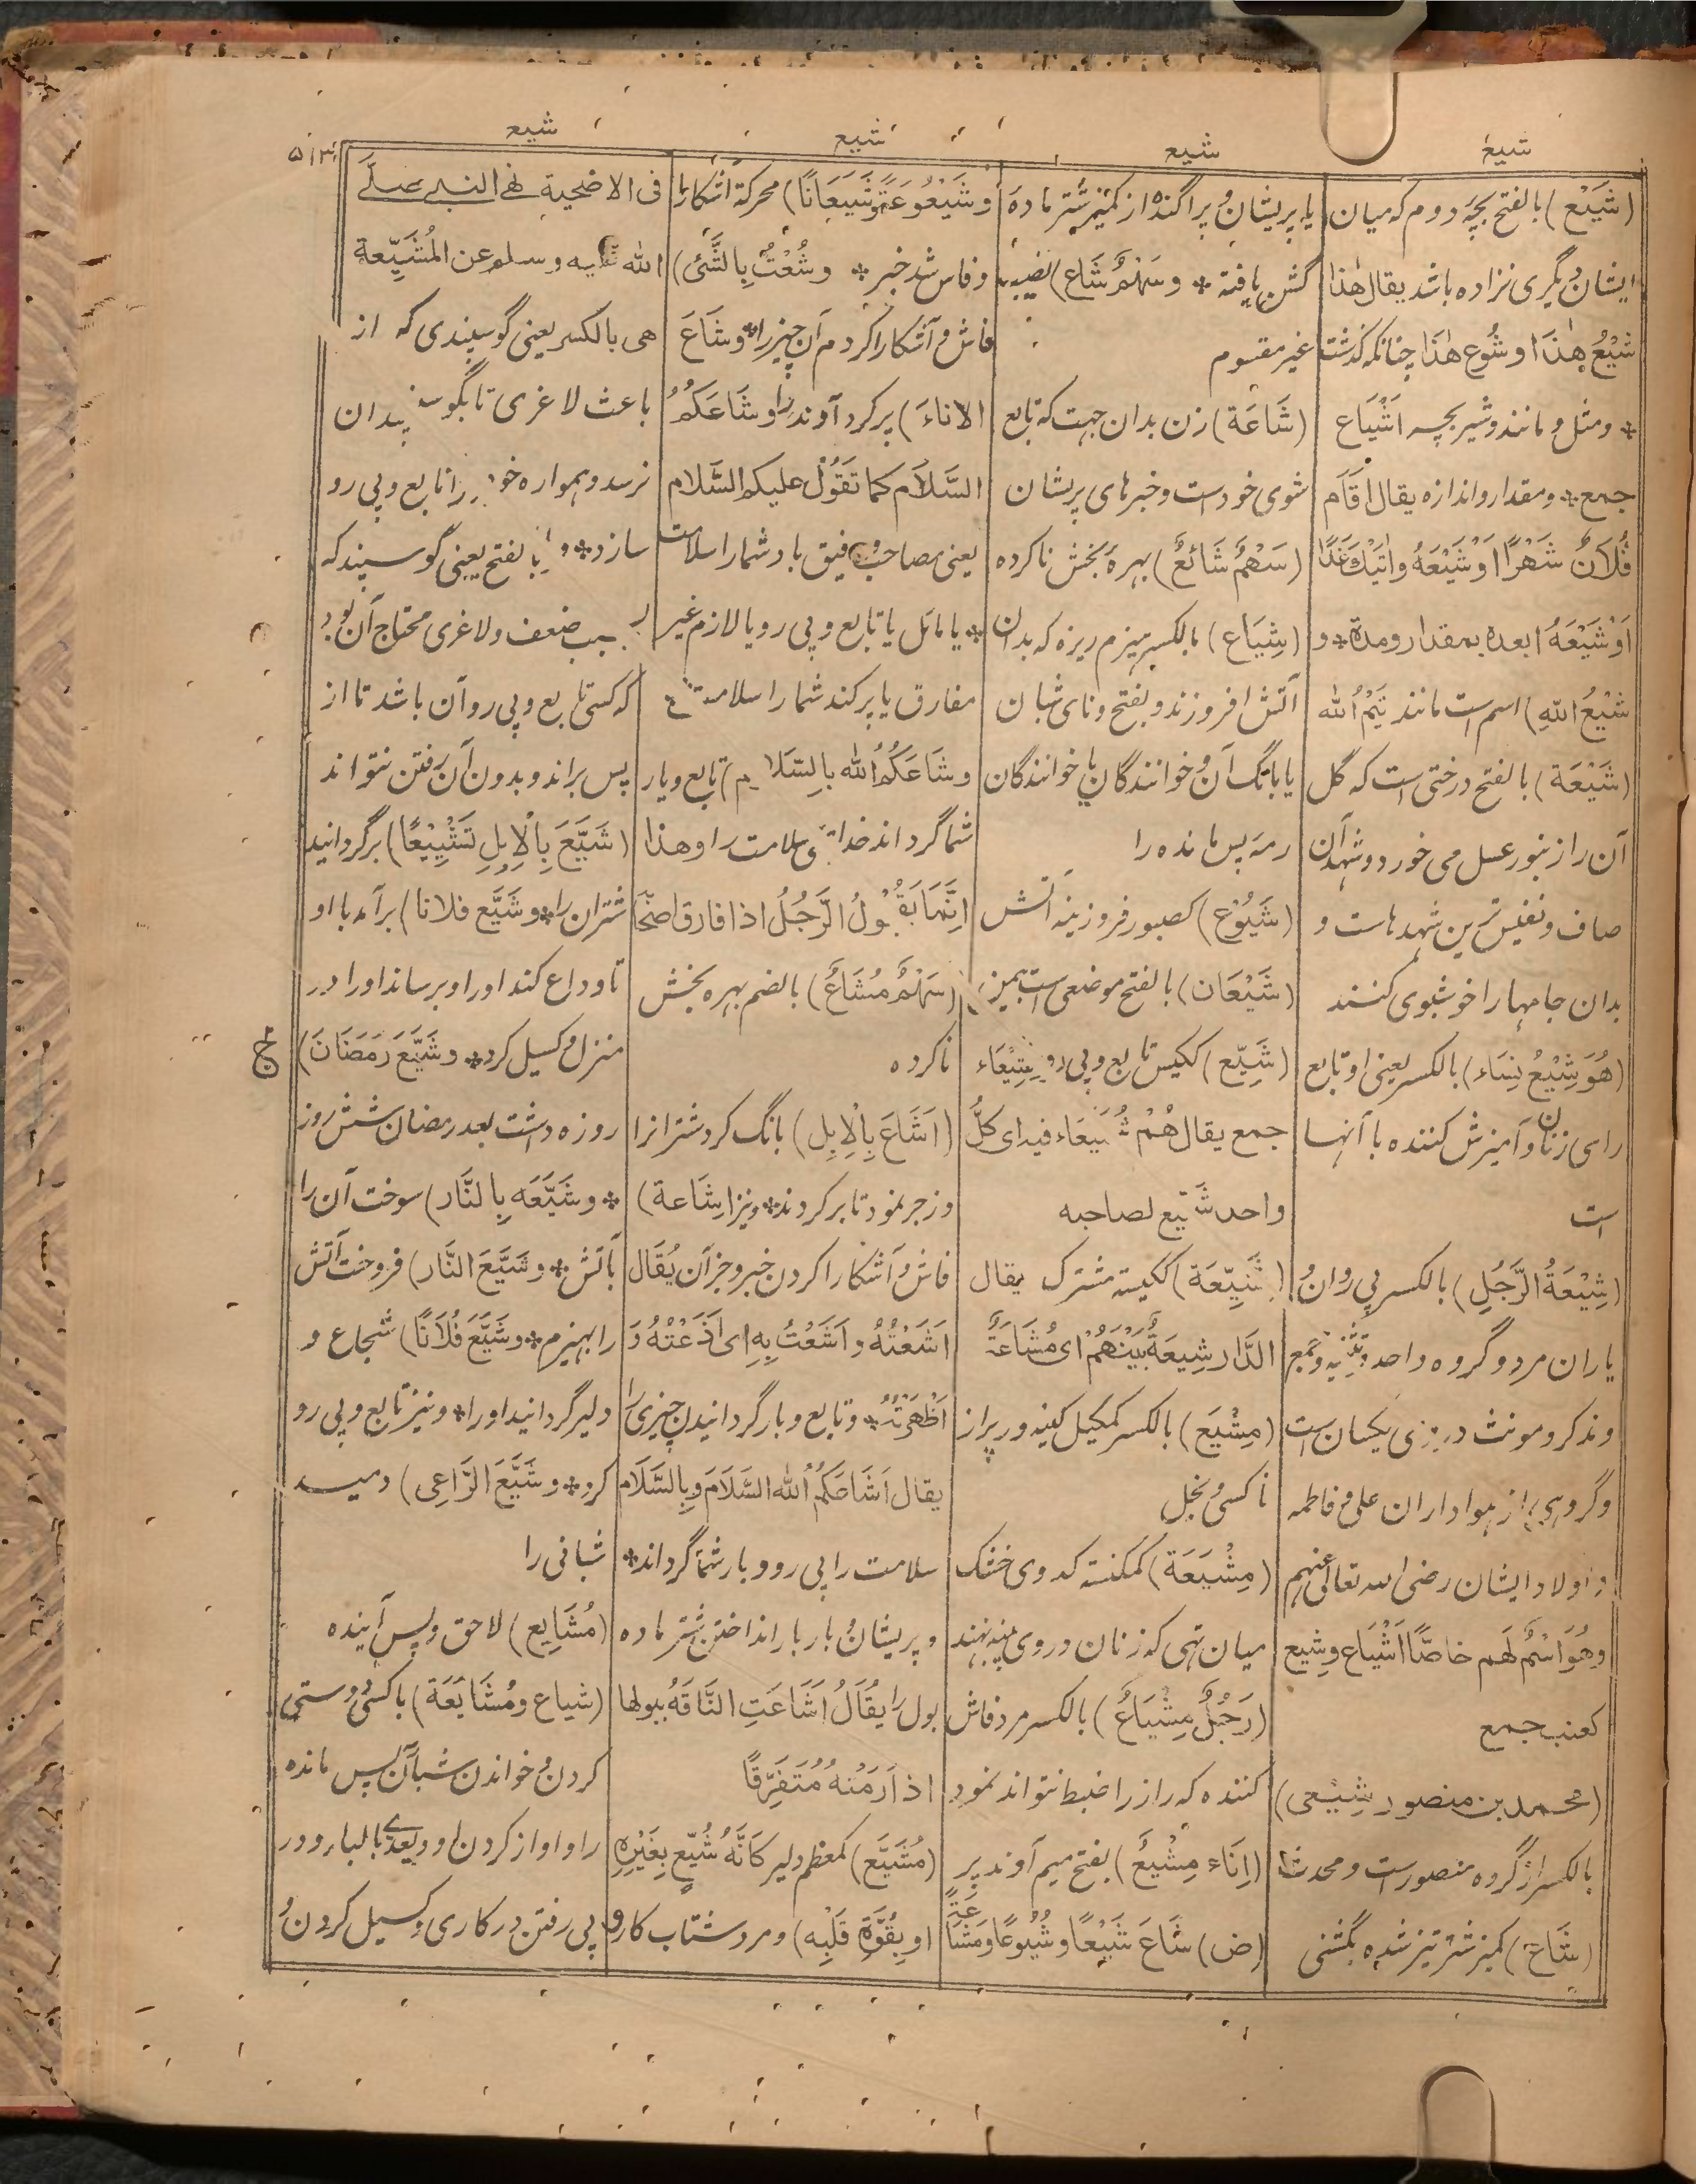 شیع
شیع
شیع
شیع
۵۱۳
(شَیْع) بالفتح بچهٔ دوم که میان
ایشان دیگری نزاده باشد یقال هٰذا
شَیْعُ هٰذَا او شَوْع هٰذَا چنانکه گذشت
* و مثل و مانند و شیر بچه اَشْیَاع
جمع * و مقدار و اندازه یقال اَقَامَ
فُلَانٌ شَهْرًا اَوْ شَیْعَهُ واٰتِیْکَ غَدًا
اَوْ شَیْعَهُ ابعده بمقداره و مدة * و
شَیْعُ اللهِ) اسم است مانند تَیْمُ الله
(شَیْعَة) بالفتح درختی است که گل
آن را زنبور عسل می خورد و شهد آن
صاف و نفیس ترین شهدهاست و
بدان جامها را خوشبوی کنند
(هُوَ شِیْعُ نِسَاء) بالکسر یعنی او تابع
رای زنان و آمیزش کننده با آنها
است
(شِیْعَةُ الرَّجُلِ) بالکسر پی روان و
یاران مرد و گروه واحد و تثنیه و جمع
و مذکر و مونث در وی یکسان است
و گروهی از هواداران علی و فاطمه
و اولاد ایشان رضی الله تعالی عنهم
وهُوَ اسْمٌ لَهم خاصًّا اَشْیَاع وشِیَع
کعنب جمع
(محمد بن منصور شِیْعی)
بالکسر از گروه منصورست و محدث
(شَاع) کمیز شتر تیز شده بگشنی
یا پریشان و پراگنده از کمیز شتر ماده
گشن یافته * وسَهْمٌ شَاع) نصیب
غیر مقسوم
(شَاعَة) زن بدان جهت که تابع
شوی خودست و خبرهای پریشان
(سَهْمٌ شَائعٌ) بهرهٔ بخش ناکرده
(شِیَاع) بالکسر هیزم ریزه که بدان
آتش افروزند و بفتح و نای شبان
یا بانگ آن و خوانندگان یا خوانندگان
رمه پس مانده را
(شَیُوْع) کصبور فروزینه آتش
(شَیْعَان) بالفتح موضعی است بیمن
(شَیِّع) ککیس تابع و پی رو شِیَعَاء
جمع یقال هُمْ شُیَعَاء فیه ای کلُّ
واحد شَیِّع لصاحبه
(شَیِّعَة) ککیسة مشترک یقال
الدَّار شِیعَةٌ بَیْنَهُمْ ای مُشَاعَةٌ
(مِشْیَع) بالکسر کمکیل کینه ور پر از
ناکسی و بخل
(مِشْیَعَة) کمکنسة کدوی خشک
میان تهی که زنان در وی پنبه نهند
(رَجُلٌ مِشْیَاعٌ) بالکسر مرد فاش
کننده که راز را ضبط نتواند نمود
(اِنَاء مَشِیْعٌ) بفتح میم آوند پر
(ض) شَاعَ شَیْعًا وشُیُوعًا ومَشَاعَةً
وشَیْعُوعَةً وشَیَعَانًا) محرکة آشکارا
و فاش شد خبر * وشُعْتُ بِالشَّیْءِ)
فاش و آشکارا کردم آن چیز را * وشَاعَ
الاناءَ) پر کرد آوند را وشَاعَکُمُ
السَّلَام کما تَقُوْل علیکم السَّلام
یعنی مصاحب و رفیق باد شما را سلامت
* یا مائل یا تابع و پی رو یا لازم غیر
مفارق یا پر کند شما را سلامت
وشَاعَکُمُ الله بِالسَّلَام) تابع و یار
شما گرداند خدای سلامت را وهذا
اِنَّمَا یَقُوْلُ الرَّجُلُ اذا فارق اصحا
(سَهْمٌ مُشَاعٌ) بالضم بهره بخش
ناکرده
(اَشَاعَ بِالْاِبِل) بانگ کرد شتران را
و زجر نمود تا بر گردند * و نیز اِشَاعة)
فاش و آشکارا کردن خبر و جز آن یُقَال
اَشَعْتُهُ واَشَعْتُ بِهِ ای اَذَعْتُهُ وَ
اَظْهَرْتُهُ * و تابع و یار گردانیدن چیزی را
یقال اَشَاعَکُمُ الله السَّلَامَ وبِالسَّلَام
سلامت را پی رو و یار شما گرداند *
و پریشان و بار بار انداختن شتر ماده
بول را یُقَالُ اَشَاعَتِ النَّاقَةُ ببولها
اذا رَمَتْهُ مُتَفَرِّقًا
(مُشَیَّع) کمعظم دلیر کَاَنَّهُ شُیِّع بِغَیْرِهِ
او بِقُوَّةِ قَلْبِه) و مرد شتاب کار
فی الاضحیة نهی النبی صلّے
الله علیه وسلم عن المُشَیِّعة
هی بالکسر یعنی گوسپندی که از
باعث لاغری تا بگوسپندان
نرسد و همواره خود را تابع و پی رو
سازد * و بالفتح یعنی گوسپند که
بسبب ضعف و لاغری محتاج آن بود
که کسی تابع و پی رو آن باشد تا از
پس براند و بدون آن رفتن نتواند
(شَیَّعَ بِالْاِبِلِ تَشْیِیْعًا) برگردانید
شتران را * وشَیَّع فلانا) برآمد با او
تا وداع کند او را و برساند او را در
منزل و گسیل کرد * وشَیَّعَ رَمَضَانَ)
روزه داشت بعد رمضان شش روز
ج
* وشَیَّعَه بِالنَّار) سوخت آن را
بآتش * وشَیَّعَ النَّار) فروخت آتش
را بهیزم * وشَیَّعَ فُلَانًا) شجاع و
دلیر گردانید او را * و نیز تابع و پی رو
کرد * وشَیَّعَ الرَّاعِی) دمید
شبانی را
(مُشَایِع) لاحق و پس آینده
(شیاع ومُشَایَعَة) با کسی دوستی
کردن و خواندن شبان پس مانده
را و آواز کردن او و یعدی بالباء و در
پی رفتن در کاری و گسیل کردن و